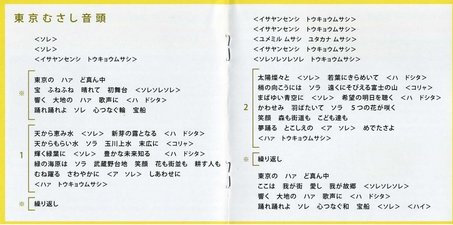 東京むさし音頭
<ソレ>
<ソレ>
<イサヤンセンシ トウキョウムサシ>
※
東京の ハァ ど真ん中
宝 ふねふね 晴れて 初舞台 <ソレソレソレ>
響く 大地の ハァ 歌声に <ハ ドシタ>
踊れ踊れよ ソレ 心つなぐ輪 宝船
1
天から恵み水 <ソレ> 新芽の露となる <ハ ドシタ>
天からもらい水 ソラ 玉川上水 末広に <コリャ>
輝く緑葉に <ソレ> 豊かな未来知る <ハ ドシタ>
緑の海原は ソラ 武蔵野台地 笑顔 花も街並も 耕す人も
むね躍る さわやかに <ア ソレ> しあわせに
<ハァ トウキョウムサシ>
※ 繰り返し
<イサヤンセンシ トウキョウムサシ>
<イサヤンセンシ トウキョウムサシ>
<ユメミル ムサシ ユタカナ ムサシ>
<イサヤンセンシ トウキョウムサシ>
<ソレソレソレソレ トウキョウムサシ>
2
太陽燦々と <ソレ> 若葉にきらめいて <ハ ドシタ>
梢の向こうには ソラ 遠くにそびえる富士の山 <コリャ>
まばゆい青空に <ソレ> 希望の明日を聴く <ハ ドシタ>
かわせみ 羽ばたいて ソラ 5つの花が咲く
笑顔 森も街道も こども達も
夢踊る とこしえの <ア ソレ> めでたさよ
<ハァ トウキョウムサシ>
※ 繰り返し
東京の ハァ ど真ん中
ここは 我が街 愛し 我が故郷 <ソレソレソレ>
響く 大地の ハァ 歌声に <ハ ドシタ>
踊れ踊れよ ソレ 心つなぐ和 宝船 <ソレ> <ハイ>